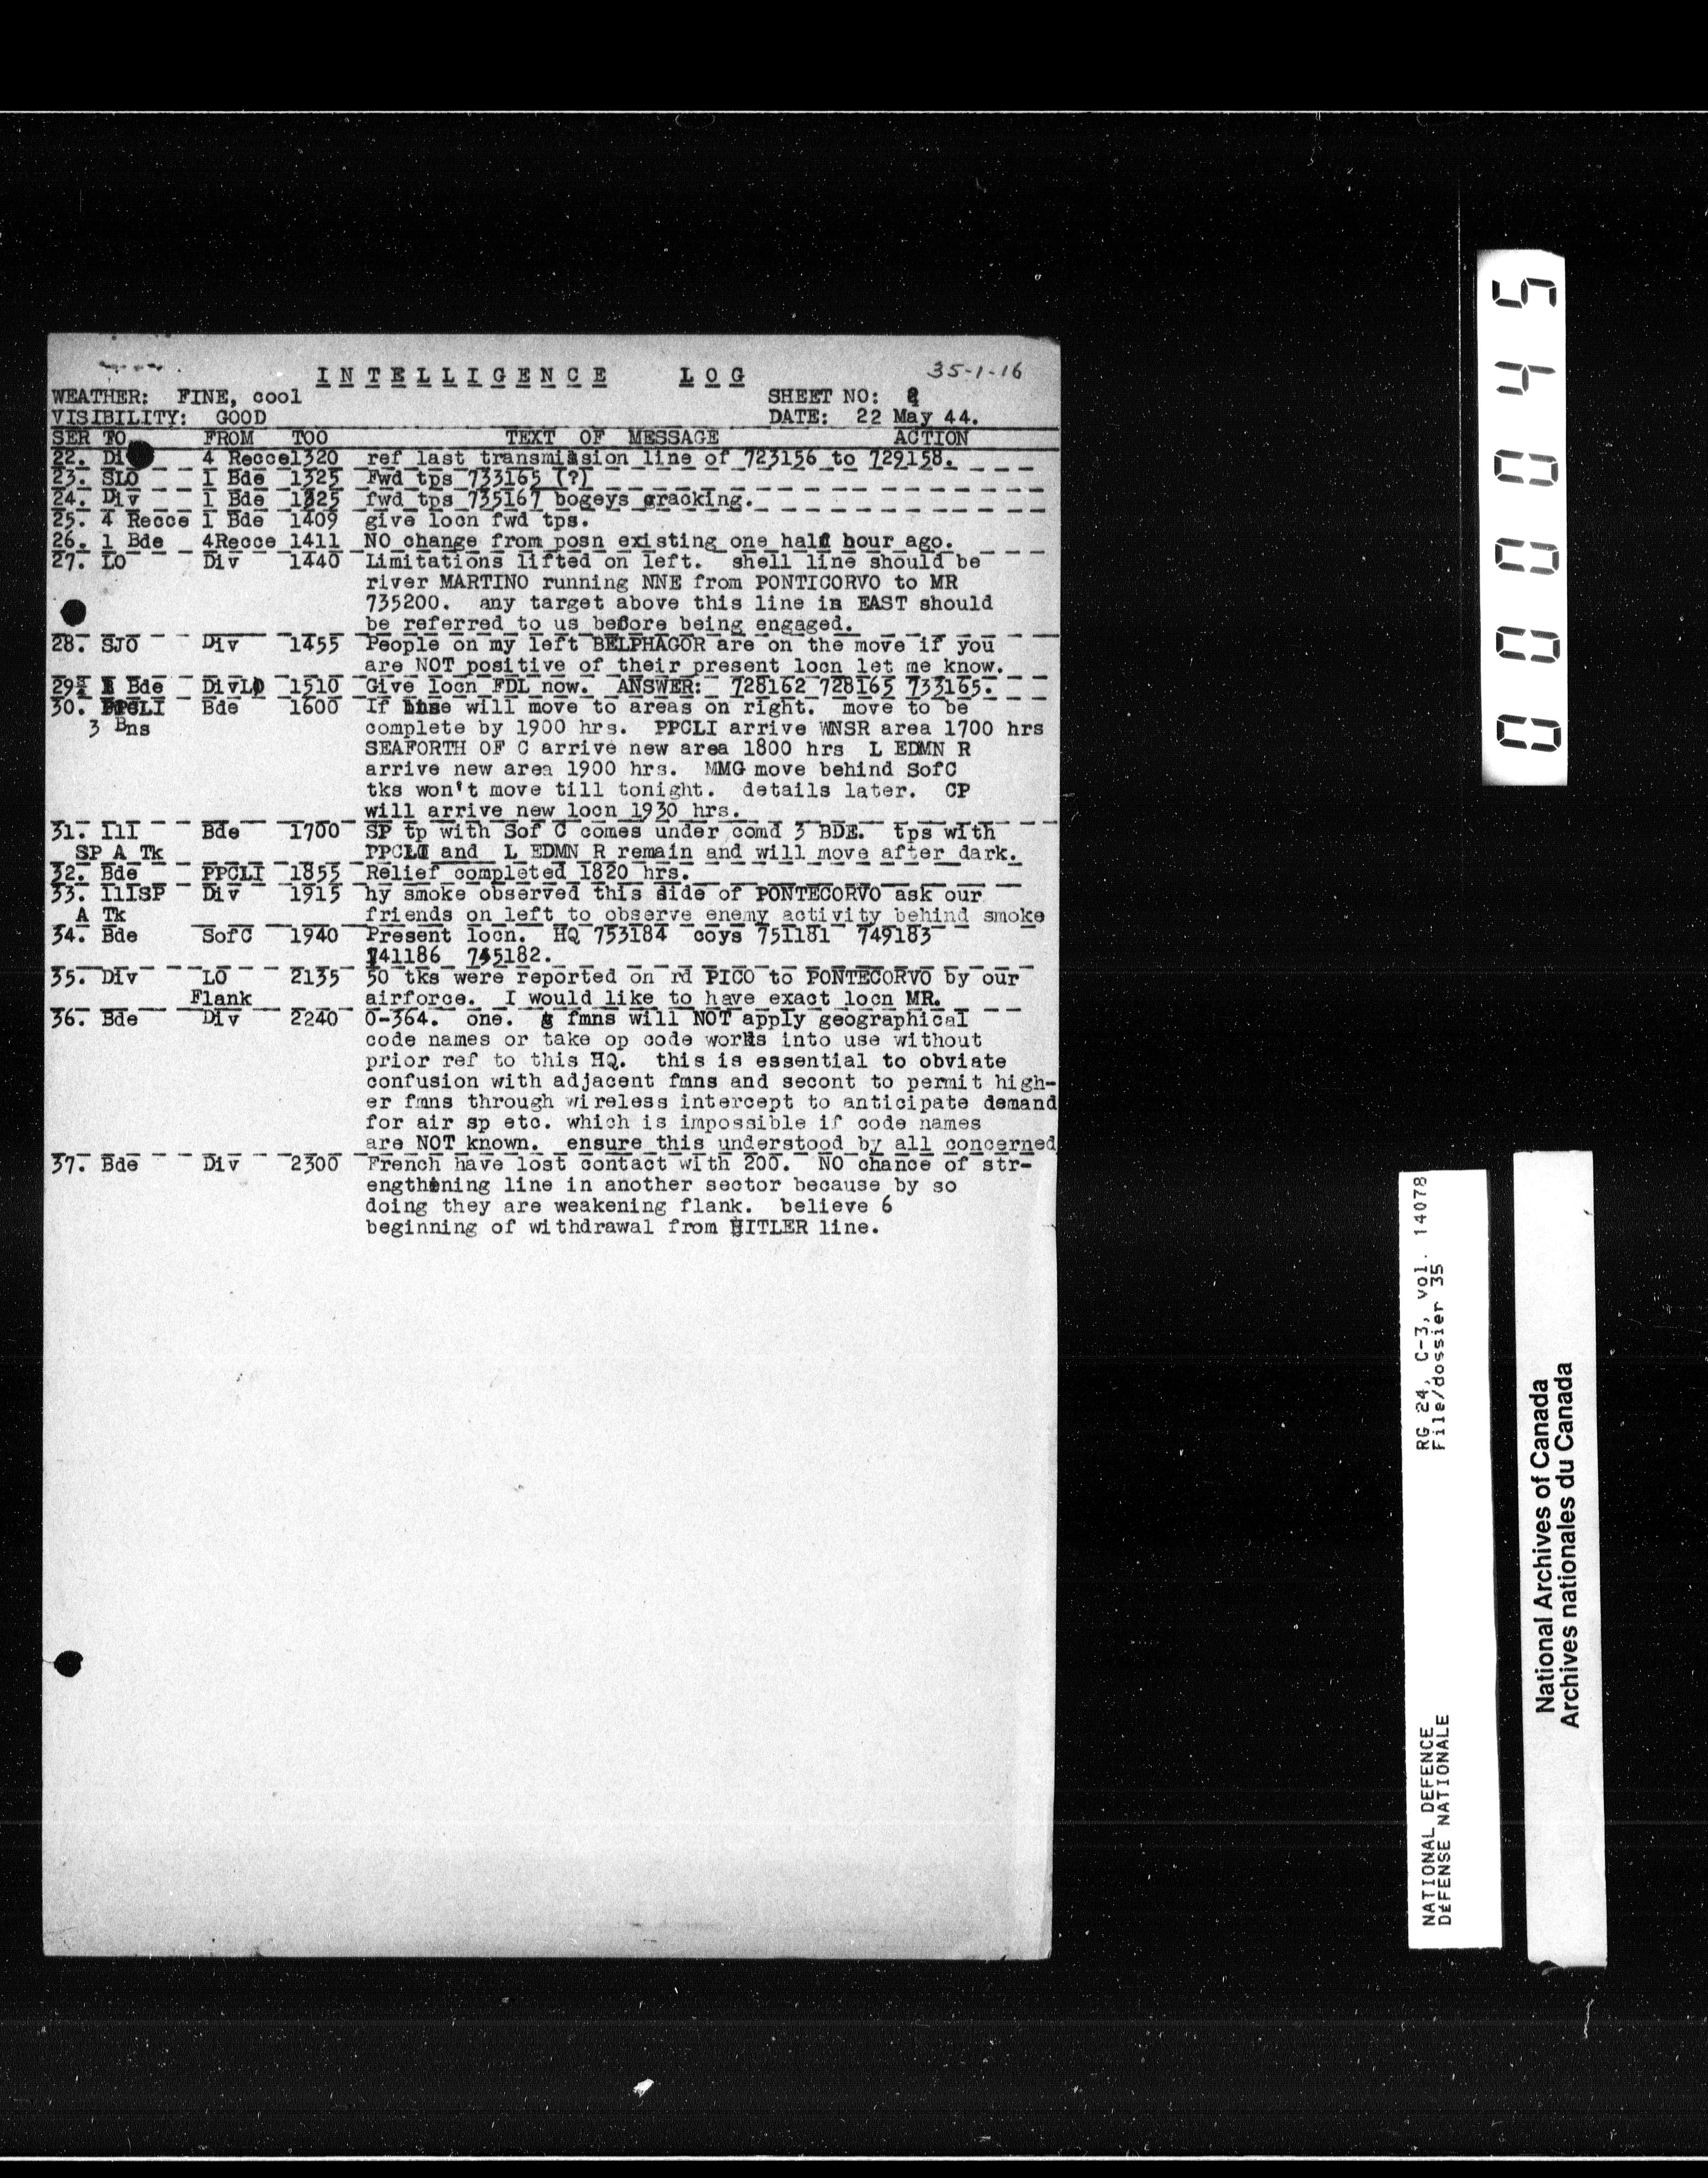 35-1-16
INTELLIGENCE LOG
WEATHER: FINE, cool SHEET NO:
VISIBILITY: GOOD DATE: 22 May 44.
SER TO FROM TOO TEXT OF MESSAGE ACTION
22. Di 4 Recce1320 ref last transmission line of 723156 to 729158.
23. SLO 1 Bde 1325 Fwd tps 733165 (?)
24. Div 1 Bde 1325 fwd tps 735167 bogeys cracking.
25. 4 Recce 1 Bde 1409 give locn fwd tps.
26. 1 Bde 4Recce 1411 NO change from posn existing one half hour ago.
27. LO Div 1440 Limitations lifted on left. shell line should be
river MARTINO running NNE from PONTICORVO to MR
735200. any target above this line in EAST should
be referred to us before being engaged.
28. SJO Div 1455 People on my left BELPHAGOR are on the move if you
are NOT positive of their present locn let me know.
29. Bde DivLO 1510 Give locn FDL now. ANSWER: 728162 728165 733165.
30. PPCLI Bde 1600 If will move to areas on right. move to be
3 Bns complete by 1900 hrs. PPCLI arrive WNSR area 1700 hrs
SEAFORTH OF C arrive new area 1800 hrs L EDMN R
arrive new area 1900 hrs. MMG move behind SofC
tks won't move till tonight. details later. CP
will arrive new locn 1930 hrs.
31. 111 Bde 1700 SP tp with Sof C comes under comd 3 BDE. tps with
SP A Tk PPCLI and L EDMN R remain and will move after dark.
32. Bde PPCLI 1855 Relief completed 1820 hrs.
33. 111SP Div 1915 hy smoke observed this side of PONTECORVO ask our
A Tk friends on left to observe enemy activity behind smoke
34. Bde SofC 1940 Present locn. HQ 753184 coys 751181 749183
741186 745182.
35. Div LO 2135 50 tks were reported on rd PICO to PONTECORVO by our
Flank airforce. I would like to have exact locn MR.
36. Bde Div 2240 O-364. one. fmns will NOT apply geographical
code names or take op code works into use without
prior ref to this HQ. this is essential to obviate
confusion with adjacent fmns and secont to permit high-
er fmns through wireless intercept to anticipate demand
for air sp etc. which is impossible if code names
are NOT known. ensure this understood by all concerned
37. Bde Div 2300 French have lost contact with 200. NO chance of str-
engthening line in another sector because by so
doing they are weakening flank. believe 6
beginning of withdrawal from HITLER line.
000045
RG 24, C-3, vol. 14078
File/dossier 35
NATIONAL DEFENCE
DÉFENSE NATIONALE
National Archives of Canada
Archives nationales du Canada